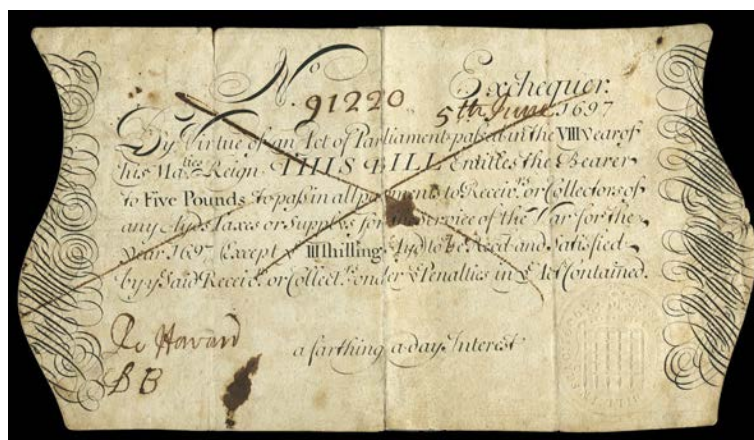 No. 91220 Exchequer.
5th June 1697
By Virtue of an Act of Parliament passed in the VIII Year of
his Maties Reign THIS BILL Entitles the Bearer
to Five Pounds to pass in all payments to Receivrs. or Collectors of
any Ayds Taxes or Supplys for the Service of the War for the
Year 1697 Except III Shilling Ayd to be Reced and Satisfied
by ye Said Receivrs. or Collectrs. under Penalties in ye Act Contained.
Howard a farthing a day Interest
BB